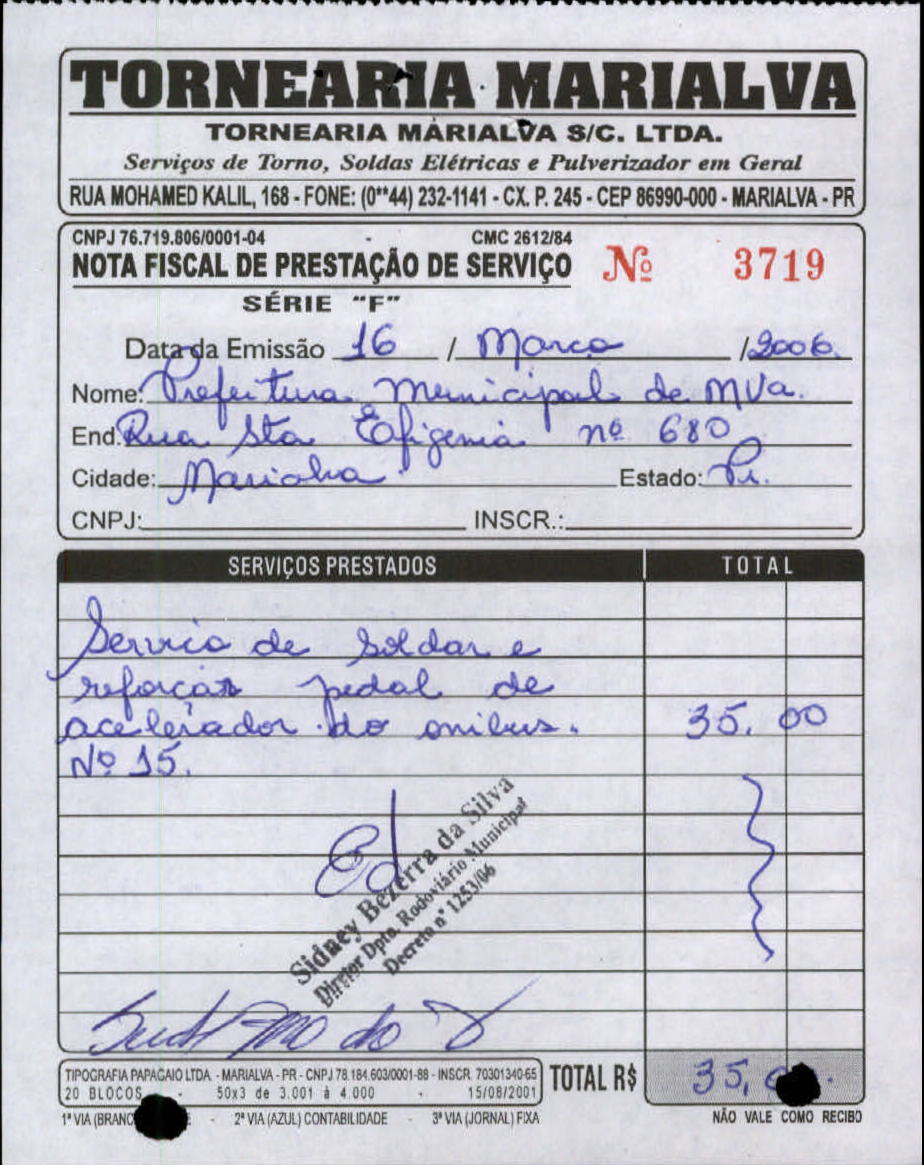 TORNEARIA MARIALVA
TORNEARIA MARIALVA S/C. LTDA.
Serviços de Torno, Soldas Elétricas e Pulverizador em Geral
RUA MOHAMED KALIL, 168 - FONE: (0**44) 232-1141 - CX. P. 245 - CEP 86990-000 - MARIALVA - PR
CNPJ 76.719.806/0001-04 - CMC 2612/84
NOTA FISCAL DE PRESTAÇÃO DE SERVIÇO Nº 3719
SÉRIE "F"
Data da Emissão 16 / Março /2006.
Nome: Prefeitura Municipal de MVa.
End. Rua Sta Efigenia nº 680
Cidade: Marialva Estado: Pr.
CNPJ: INSCR.:
SERVIÇOS PRESTADOS TOTAL
Servico de Soldar e
reforçar pedal de
acelerador do onibus. 35,00
Nº 15.
Sidney Bezerra da Silva
Diretor Dpto. Rodoviário Municipal
Decreto nº 1253/06
TIPOGRAFIA PAPAGAIO LTDA - MARIALVA - PR - CNPJ 78.184.603/0001-88 - INSCR. 70301340-65
20 BLOCOS - 50x3 de 3.001 à 4.000 - 15/08/2001
TOTAL R$ 35,
1ª VIA (BRANC - 2ª VIA (AZUL) CONTABILIDADE - 3ª VIA (JORNAL) FIXA
NÃO VALE COMO RECIBO